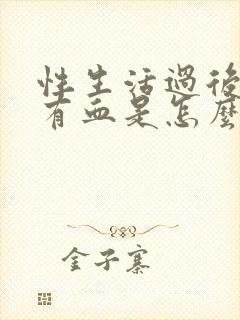 性生活過後
有血是怎麼
金子寨